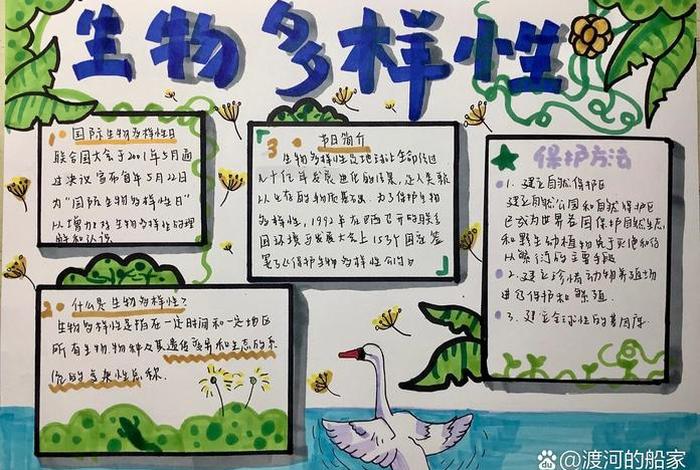 生物多样性
1. 国际生物多样性日
联合国大会于2001年5月通
过决议宣布每年5月22日
为"国际生物多样性日"
以增加对生物多样性的理
解和认识
3. 节日简介
生物多样性是地球上生命经过
几十亿年发展进化的结果,是人类赖
以生存的物质基础。为了保护生物
多样性,1992年在巴西召开的联合
国环境与发展大会上153个国家签
署了《保护生物多样性公约》
保护方法
1. 建立自然保护区
建立自然公园和自然保护区
已成为世界各国保护自然生态
和野生动植物免于灭绝和得
以繁衍的主要手段
2. 建立珍稀动物养殖场
进行保护和繁殖
3. 建立全球性的基因库
2. 什么是生物多样性?
生物多样性是指在一定时间和一定地区
所有生物物种及其遗传变异和生态的系
统的复杂性总称.
Bai du @渡河的船家